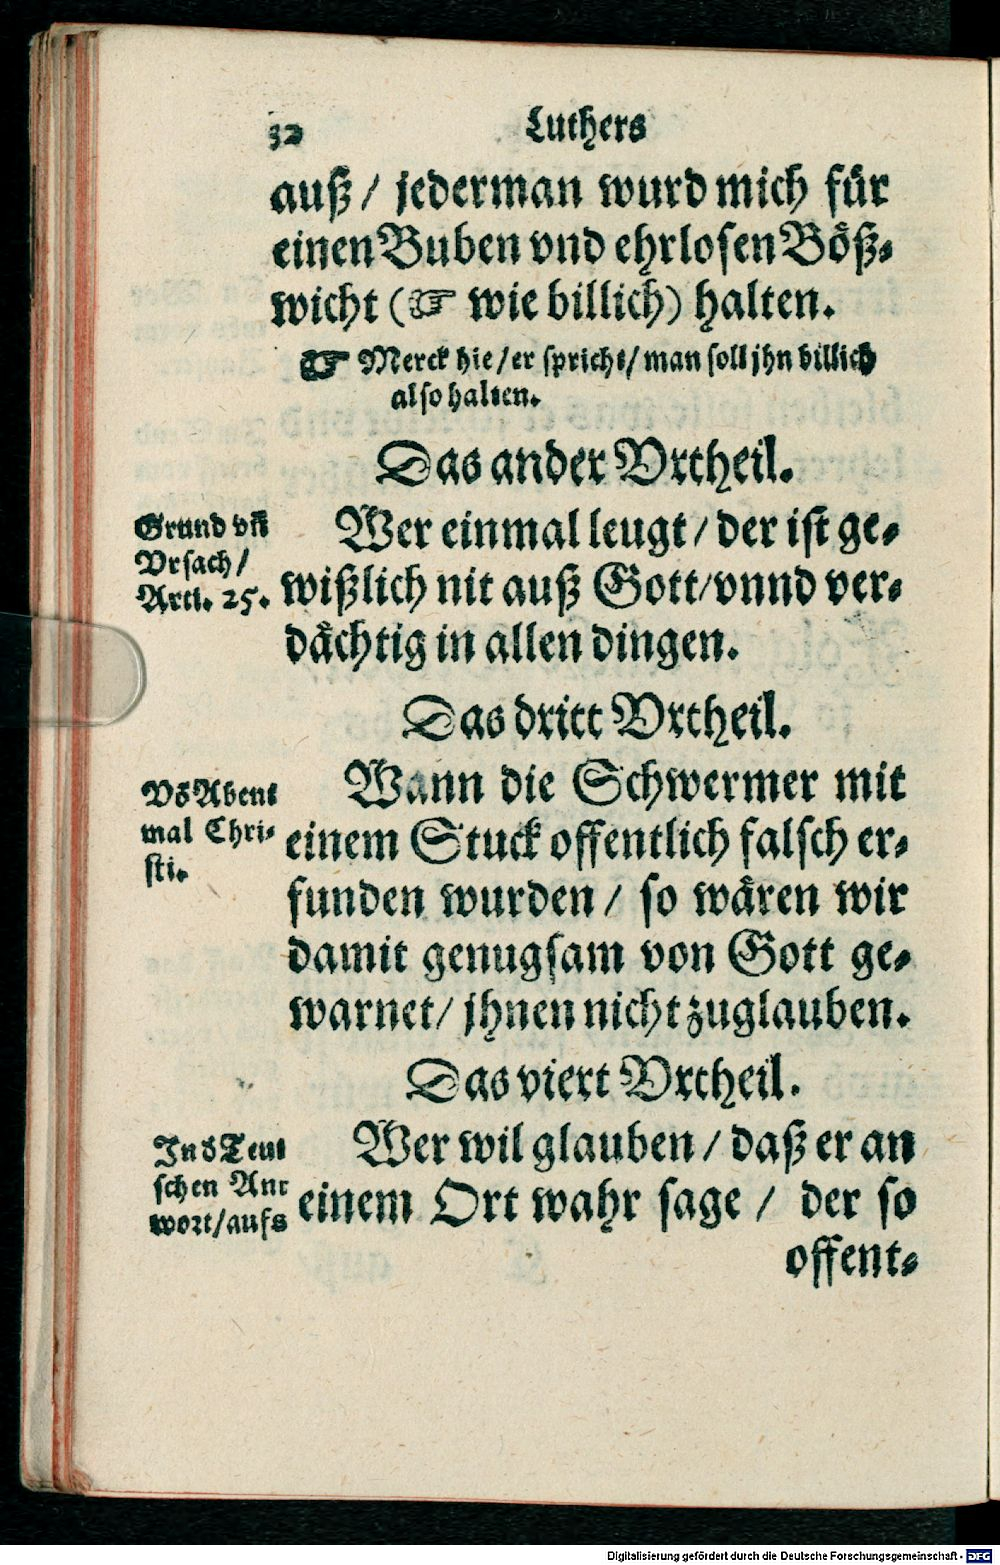 32 Luthers
auß / jederman wurd mich für
einen Buben vnd ehrlosen Bößz⸗
wicht (☞ wie billich) halten.
☞ Merck hie / er spricht / man soll jhn billich
also halten.
Das ander Vrtheil.
Grund vñ
Vrsach /
Artl. 25.
Wer einmal leugt / der ist ge⸗
wißlich nit auß Gott / vnnd ver⸗
dächtig in allen dingen.
Das dritt Vrtheil.
Vō Abent
mal Chri⸗
sti.
Wann die Schwermer mit
einem Stuck offentlich falsch er⸗
funden wurden / so wären wir
damit genugsam von Gott ge⸗
warnet / jhnen nicht zuglauben.
Das viert Vrtheil.
In d Teut
schen Ant
wort / aufs
Wer wil glauben / daß er an
einem Ort wahr sage / der so
offent⸗
Digitalisierung gefördert durch die Deutsche Forschungsgemeinschaft - DFG